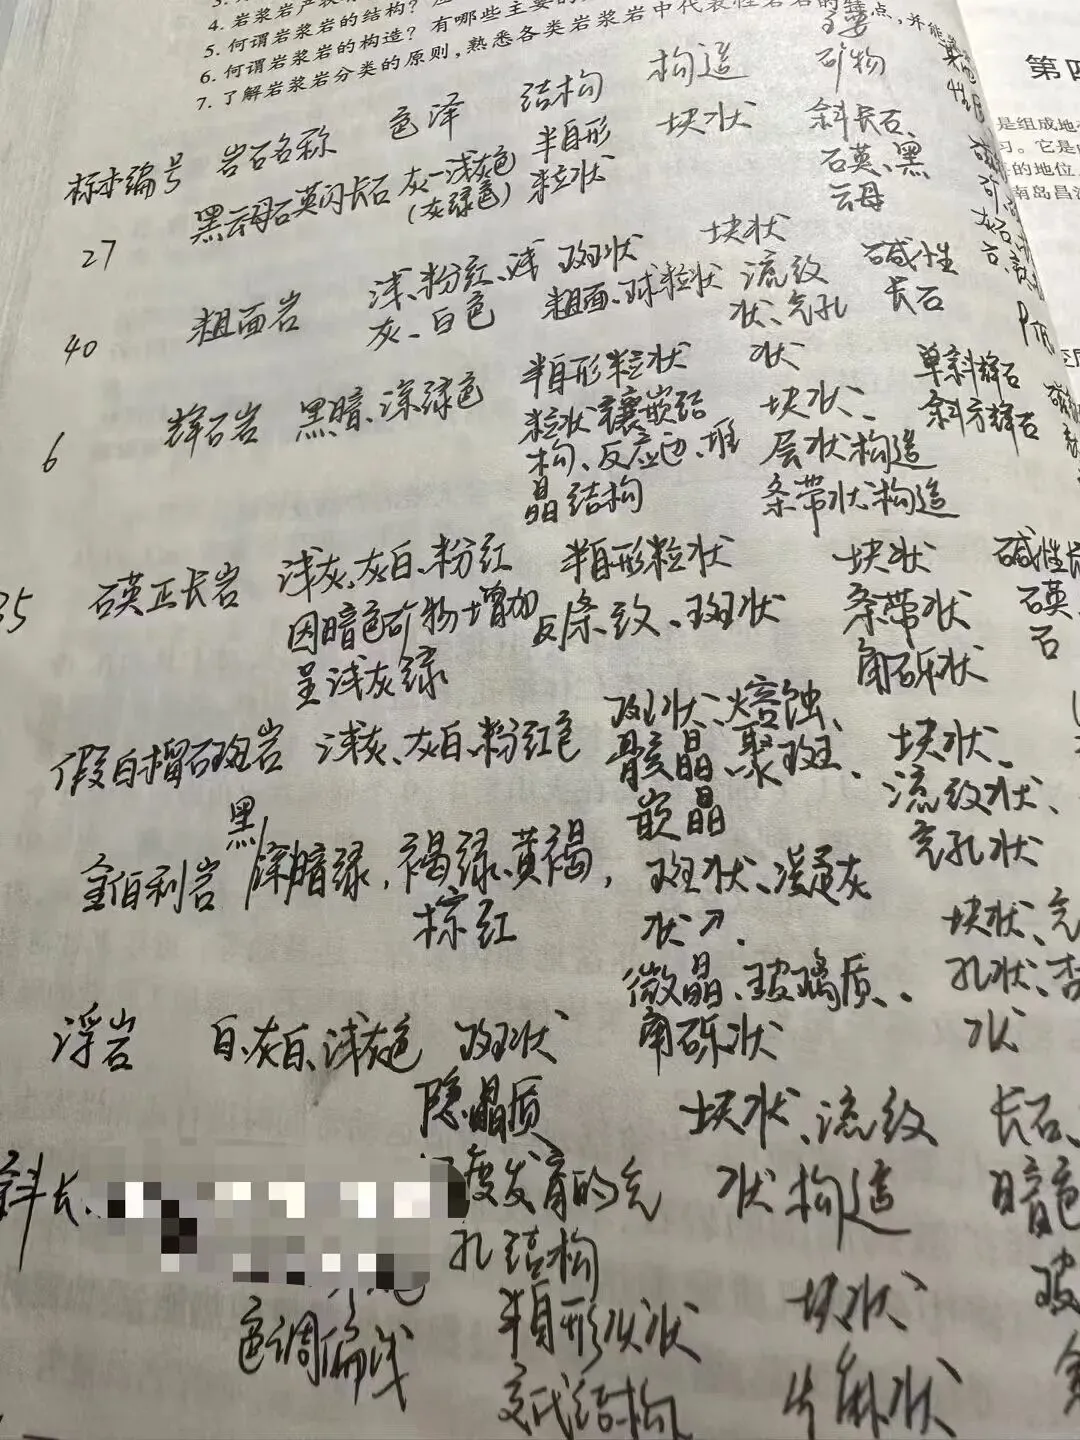 4. 岩浆岩产状
5. 何谓岩浆岩的结构?
6. 何谓岩浆岩的构造? 有哪些主要的
7. 了解岩浆岩分类的原则,熟悉各类岩浆岩中代表性岩石的特点,并能
第四
是组成地
习。它是
的地位
南岛昌
标本编号 岩石名称 色泽 结构 构造 主要矿物
27 黑云母石英闪长石 灰-浅灰色 半自形 块状 斜长石、
(灰绿色) 粒状 石英、黑
云母
40 粗面岩 浅、粉红、浅 斑状 块状 碱性
灰、白色 粗面、球粒状 流纹 长石
状、气孔
状
6 辉石岩 黑暗、深绿色 半自形粒状 块状、 单斜辉石
粒状镶嵌结 层状构造 斜方辉石
构、反应边、堆 条带状构造
晶结构
35 石英正长岩 浅灰、灰白、粉红 半自形粒状 块状 碱性长
因暗色矿物增加 反条纹、斑状 条带状 石英、
呈浅灰绿 角砾状 石
假白榴石斑岩 浅灰、灰白、粉红色 斑状、熔蚀、 块状、
骸晶、聚斑、 流纹状、
嵌晶 气孔状
金伯利岩 黑 深暗绿,褐绿、黄褐, 斑状、凝灰 块状、气
棕红 状 孔状、杏
微晶、玻璃质、 状
角砾状
浮岩 白、灰白、浅灰色 斑状 块状、流纹 长石、
隐晶质 状构造 暗色
度发育的气
孔结构
斜长
色调偏浅 半自形 状 块状
交代结构 片麻状